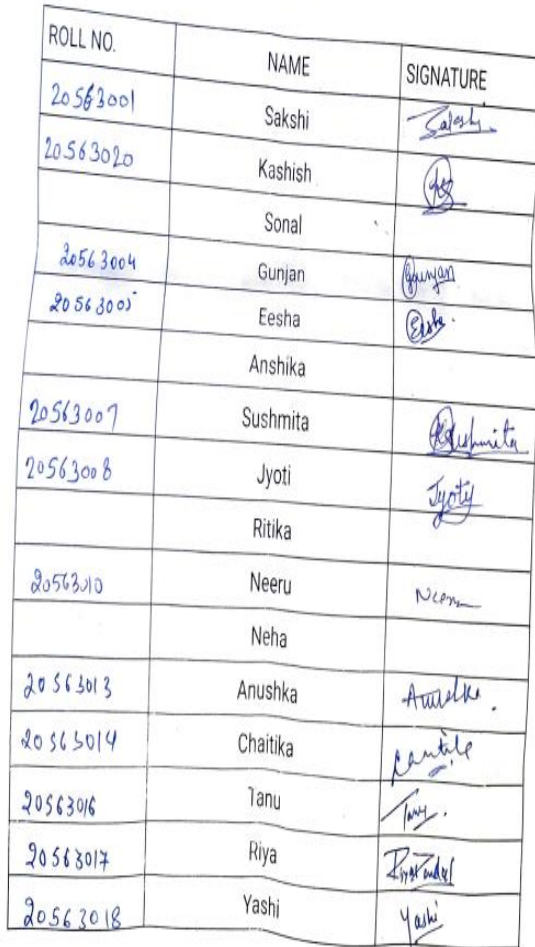 ROLL NO. NAME SIGNATURE
20563001 Sakshi
20563020 Kashish
Sonal
20563004 Gunjan Gunjan
20563005 Eesha Eesha
Anshika
20563007 Sushmita Sushmita
20563008 Jyoti Jyoty
Ritika
20563010 Neeru
Neha
20563013 Anushka Anushka.
20563014 Chaitika
20563016 Tanu Tanu.
20563017 Riya
20563018 Yashi Yashi